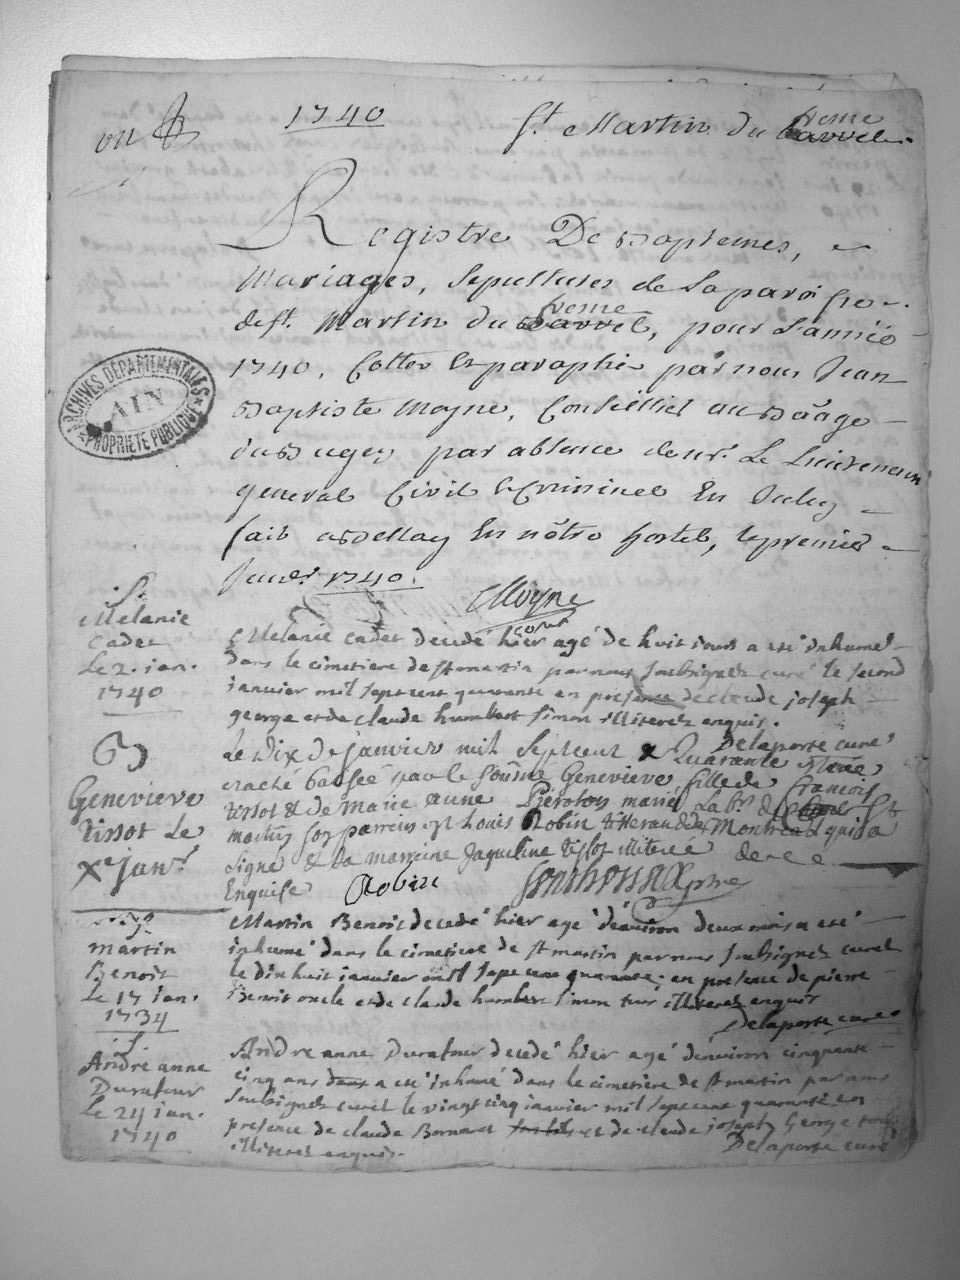 un
1740
St. Martin du fresne
Registre De Baptemes,
Mariages, Sepultures de La paroisse
de St. Martin du fresne, pour L'année
1740. Cottée et paraphée par nous Jean
Baptiste Moyne, Conseillier au Bâage
du Bugey par absence de mr. Le Lieutenant
general Civil et Criminel En Iceluy
fait a Bellay En nôtre hostel, le premier
Janvr. 1740.
Moyne
ARCHIVES DÉPARTEMENTALES
AIN
PROPRIÉTÉ PUBLIQUE
S.
Melanie
Cadet
Le 2. jan.
1740
Melanie cadet decedé hier agé de huit jours a eté inhumé
dans le cimetiere de st martin par nous soubsigné curé le second
janvier mil sept cent quarante en presence de claude joseph
george et de claude humbert simon illiterez enquis.
Delaporte curé
B
Genevieve
Tissot Le
Xe janr.
Le Dix De janvier mil Sept cent Quarante
baptisée par le Soussigné Genevieve fille de François
Tissot & de Marie anne mariés
martin son parrein est Louis Robin de Montreal qui a
signé & la marreine Jaqueline tissot illiterée de ce
Enquise
Robin
Sonthonnax ptre
S.
Martin
Benoit
Le 17 jan.
1734
Martin Benoit decedé hier agé d'environ deux mois a eté
inhumé dans le cimetiere de st martin par nous soubsigné curé
le dixhuit janvier mil sept cent quarante. en presence de pierre
Benoit oncle et de claude humbert simon tous illiterez enquis
Delaporte curé
S.
Andre anne
Durafour
Le 24 jan.
1740
Andre anne Durafour decedé hier agé d'environ cinquante
cinq ans dans a eté inhumé dans le cimetiere de st martin par nous
soubsigné curé le vingt cinq janvier mil sept cent quarante en
presence de claude Bornaret et de claude joseph George tous
illiterez enquis.
Delaporte curé